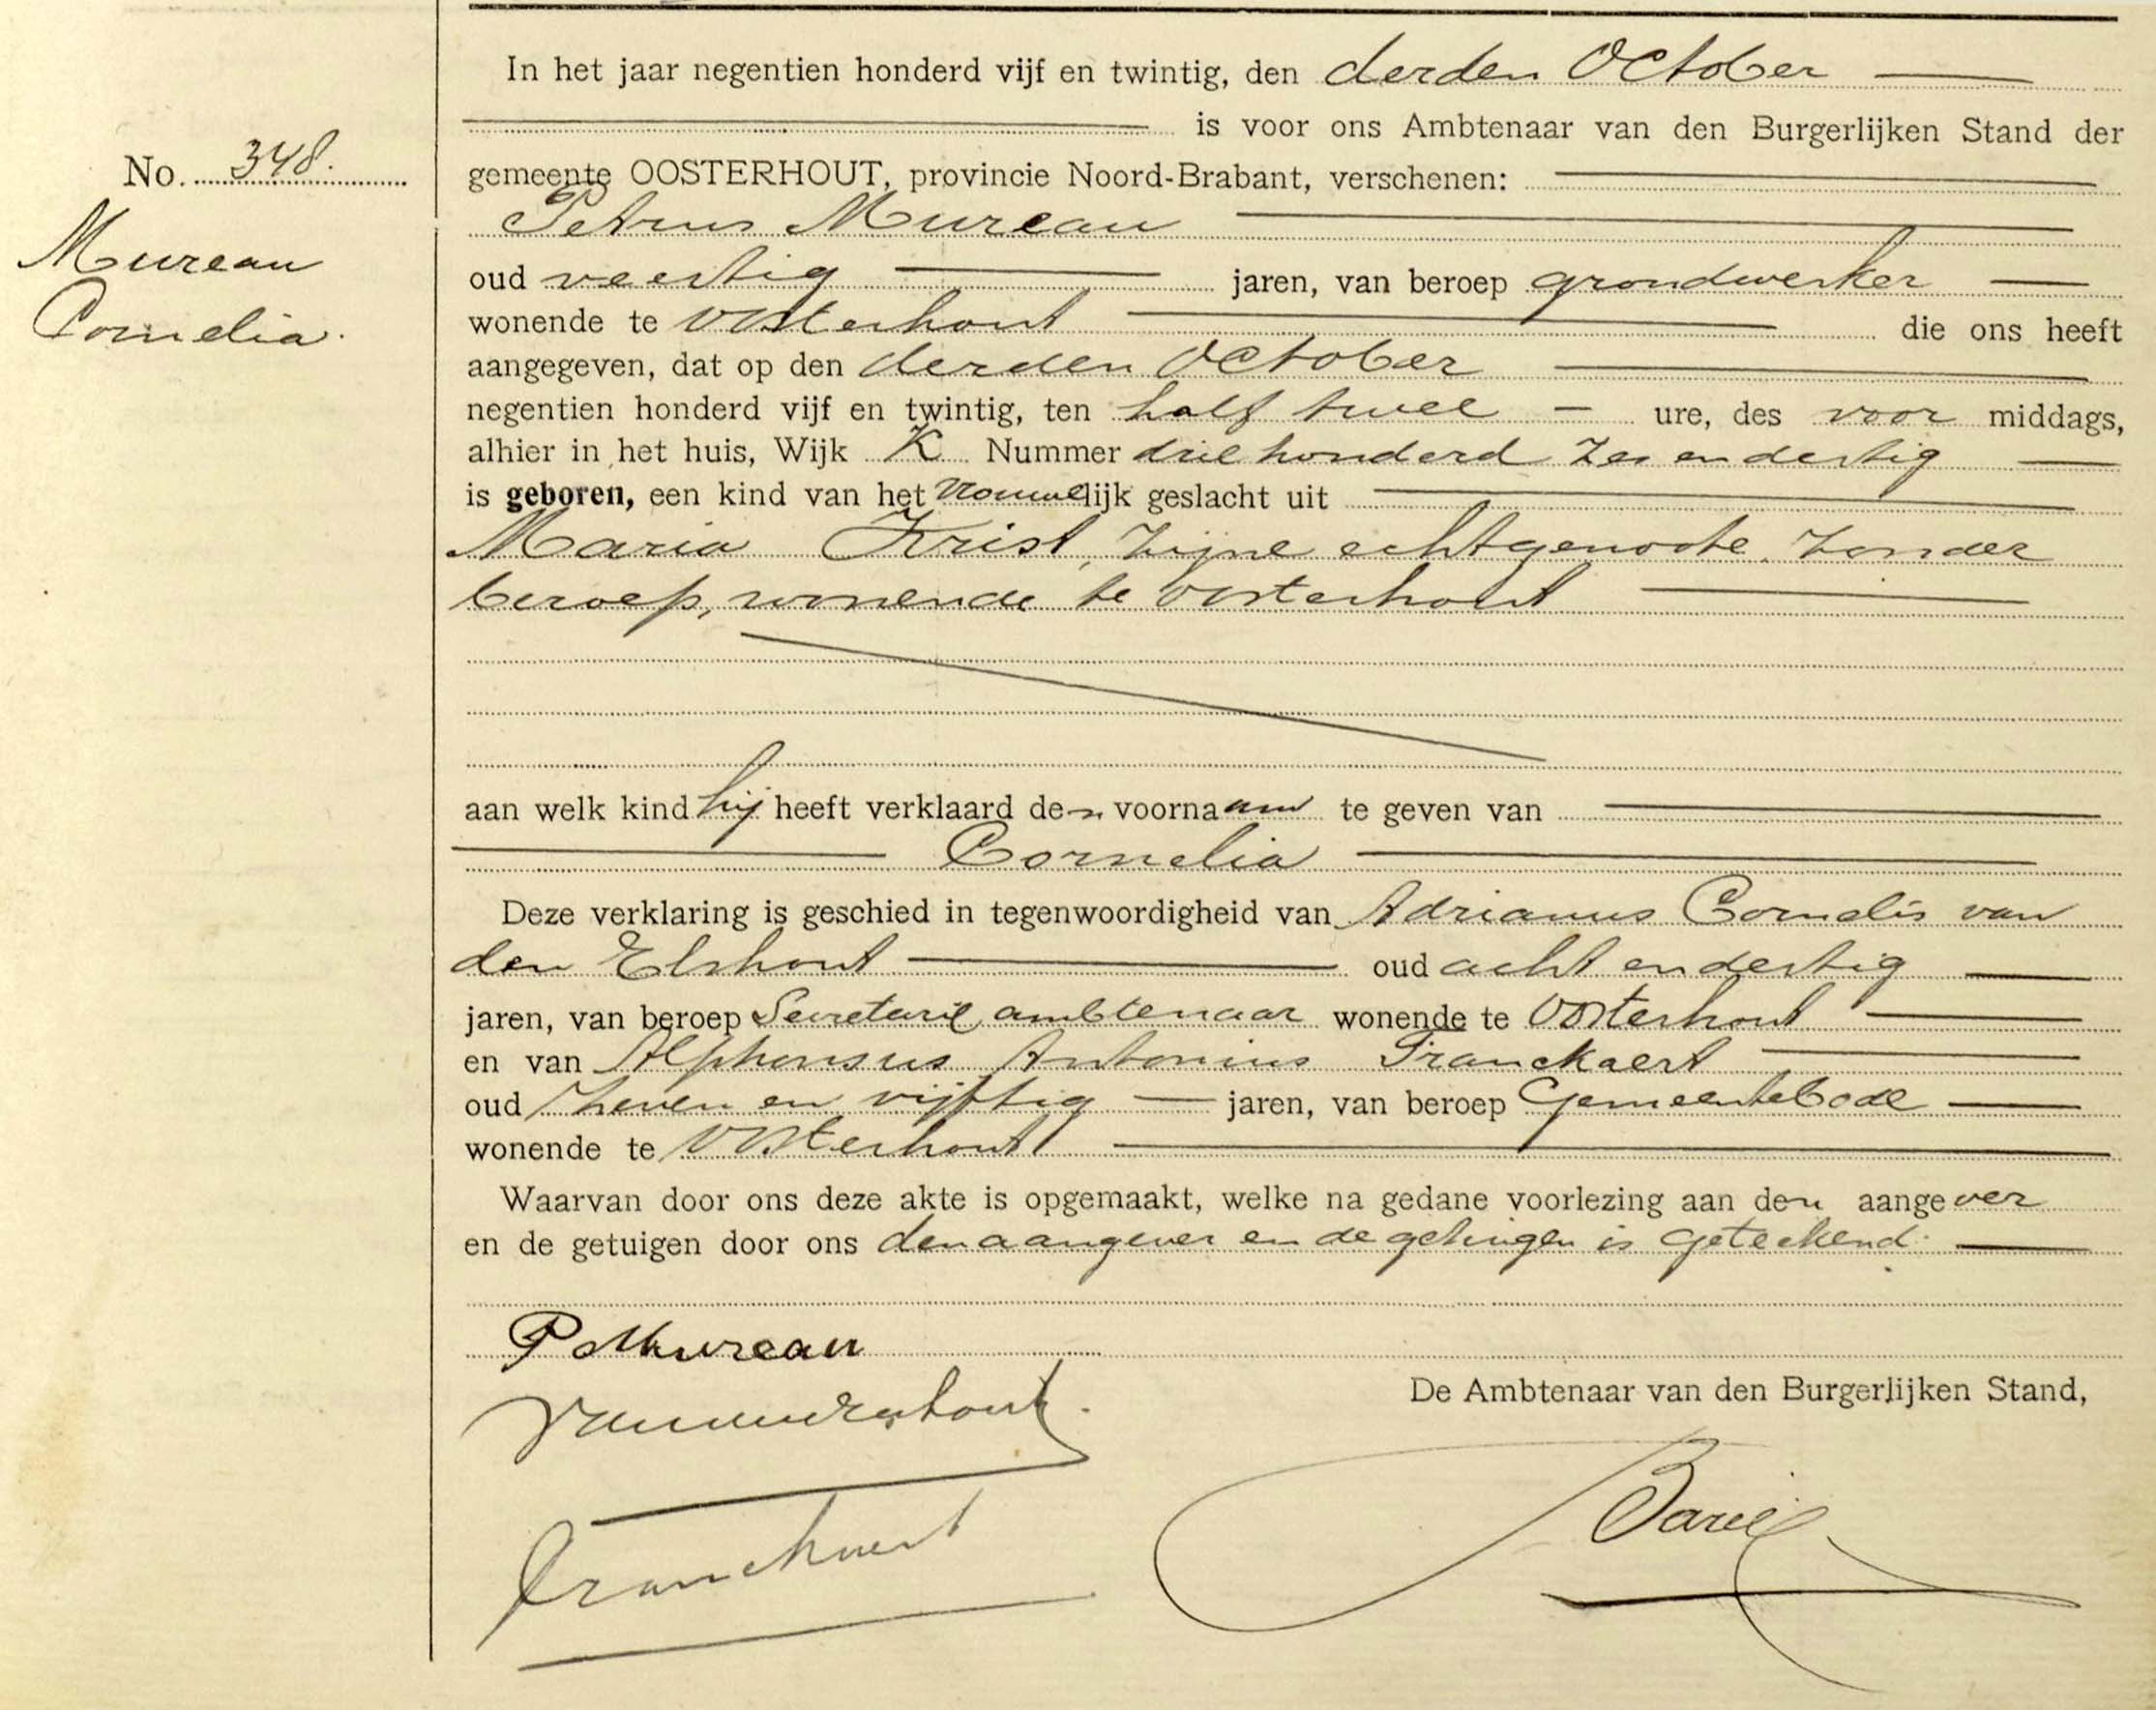 No. 348.
Mureau
Cornelia.
In het jaar negentien honderd vijf en twintig, den derden October
is voor ons Ambtenaar van den Burgerlijken Stand der
gemeente OOSTERHOUT, provincie Noord-Brabant, verschenen:
Petrus Mureau
oud veertig jaren, van beroep grondwerker
wonende te Oosterhout die ons heeft
aangegeven, dat op den derden October
negentien honderd vijf en twintig, ten half twee ure, des voor middags,
alhier in het huis, Wijk K Nummer drie honderd zes en dertig
is geboren, een kind van het vrouwelijk geslacht uit
Maria Krist, zijne echtgenoote, zonder
beroep, wonende te Oosterhout
aan welk kind hij heeft verklaard den voornaam te geven van
Cornelia
Deze verklaring is geschied in tegenwoordigheid van Adrianus Cornelis van
den Elshout oud acht en dertig
jaren, van beroep Secretarie ambtenaar wonende te Oosterhout
en van Alphonsus Antonius Franckaert
oud zeven en vijftig jaren, van beroep Gemeentebode
wonende te Oosterhout
Waarvan door ons deze akte is opgemaakt, welke na gedane voorlezing aan den aangever
en de getuigen door ons den aangever en de getuigen is geteekend.
P Mureau
De Ambtenaar van den Burgerlijken Stand,
Franckaert